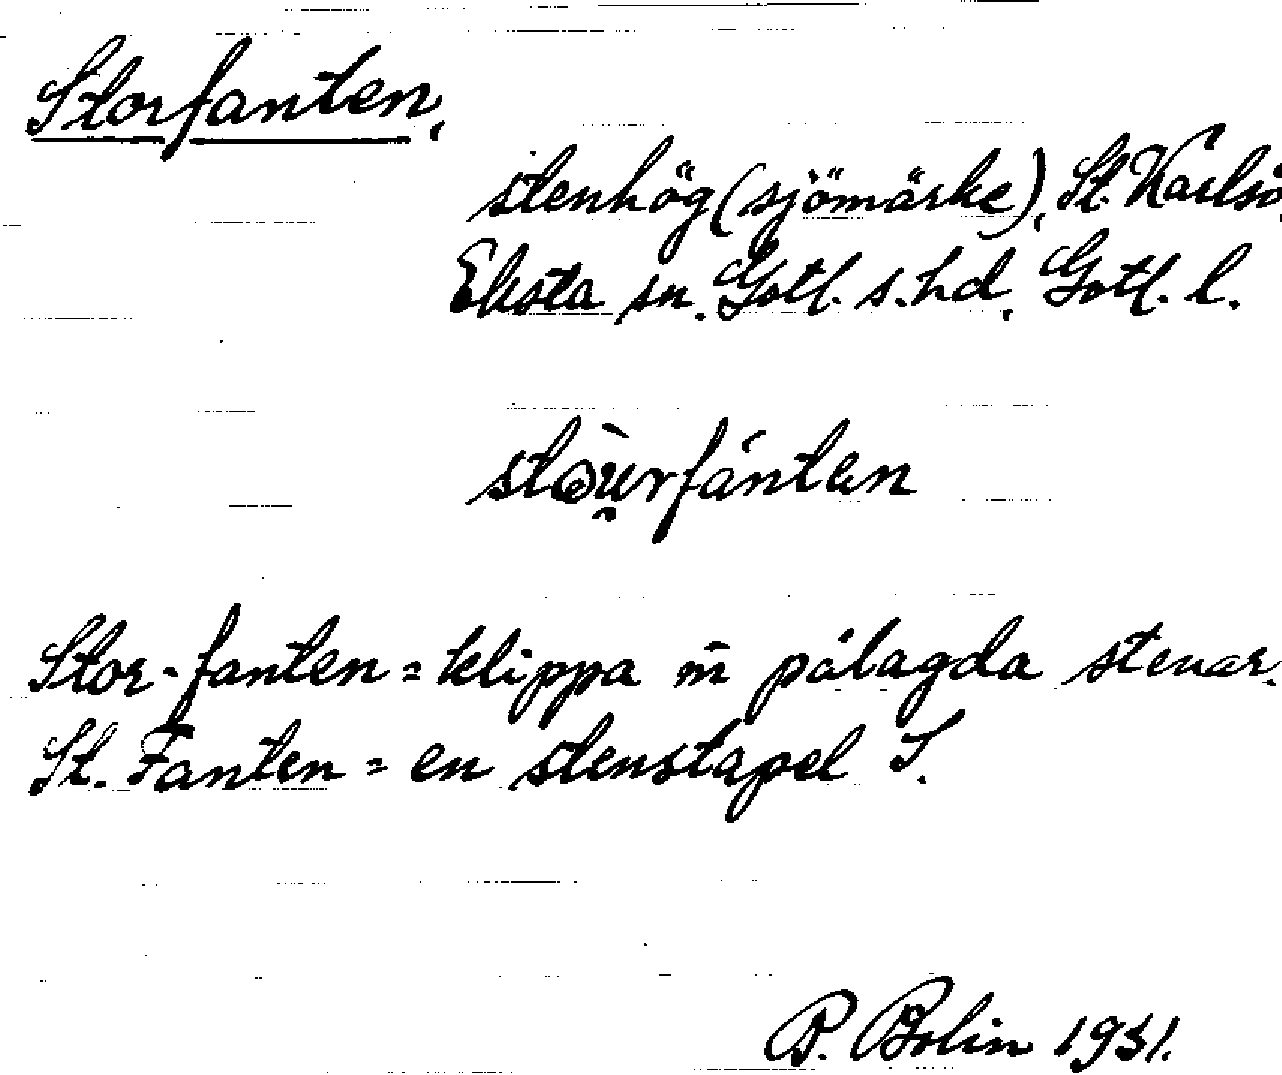 Storfanten,
stenhög (sjömärke), St. Karlsö,
Eksta sn. Gotl. s. hd, Gotl. l.
stòu̯rfánten
Stor-fanten = klippa m̄ pålagda stenar.
St. Fanten = en stenstapel S.
P. Bolin 1931.